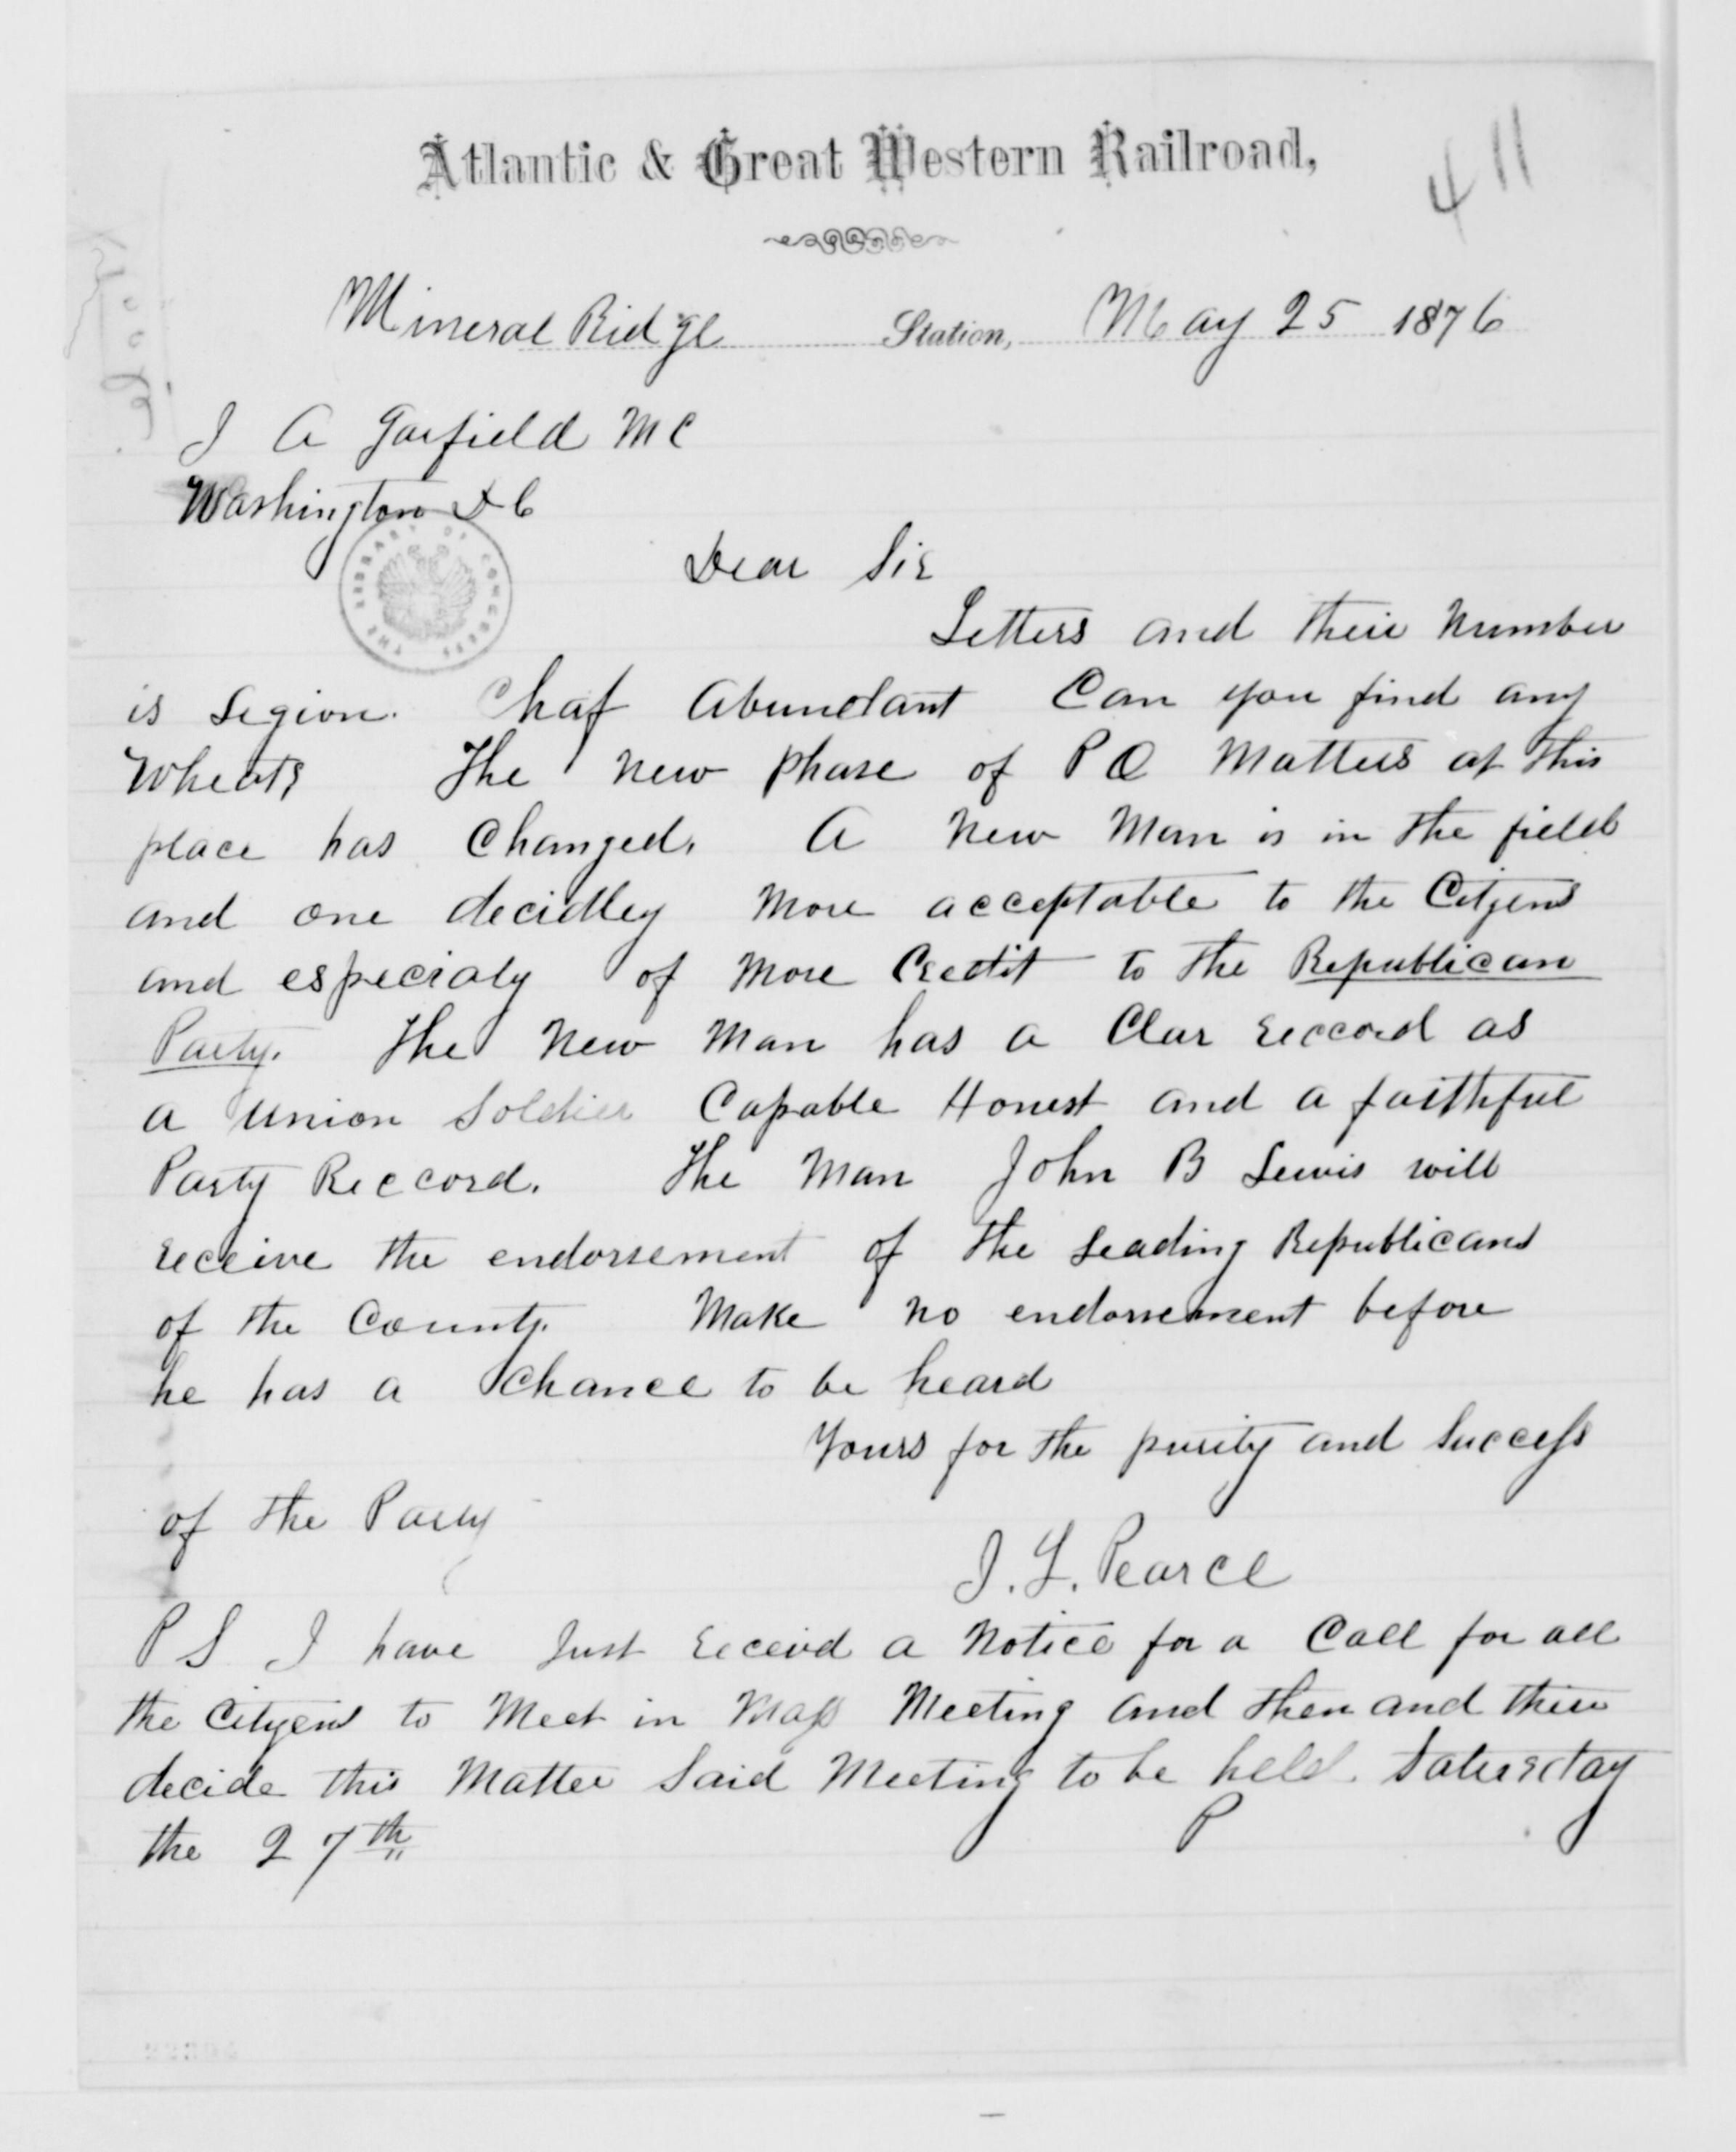 Atlantic & Great Western Railroad,
4 11
Mineral Ridge Station, May 25 1876
J A Garfield M C
Washington D C
THE LIBRARY OF CONGRESS
Dear Sir
Letters and their number
is Legion. Chaf abundant Can you find any
Wheat? The new phase of P O Matters at this
place has Changed. A New Man is in the field
and one decidley More acceptable to the Citzens
and especialy of More Credit to the Republican
Party. The New Man has a Clar reccord as
a Union Soldier Capable Honest and a faithful
Party Reccord. The Man John B Lewis will
receive the endorsement of the Leading Republicans
of the County. Make no endorsement before
he has a Chance to be heard
Yours for the purity and Success
of the Party
J. L. Pearce
P S I have Just receivd a Notice for a Call for all
the Citzens to Meet in Mass Meeting and then and there
decide this Matter Said Meeting to be held Saturday
the 27th P